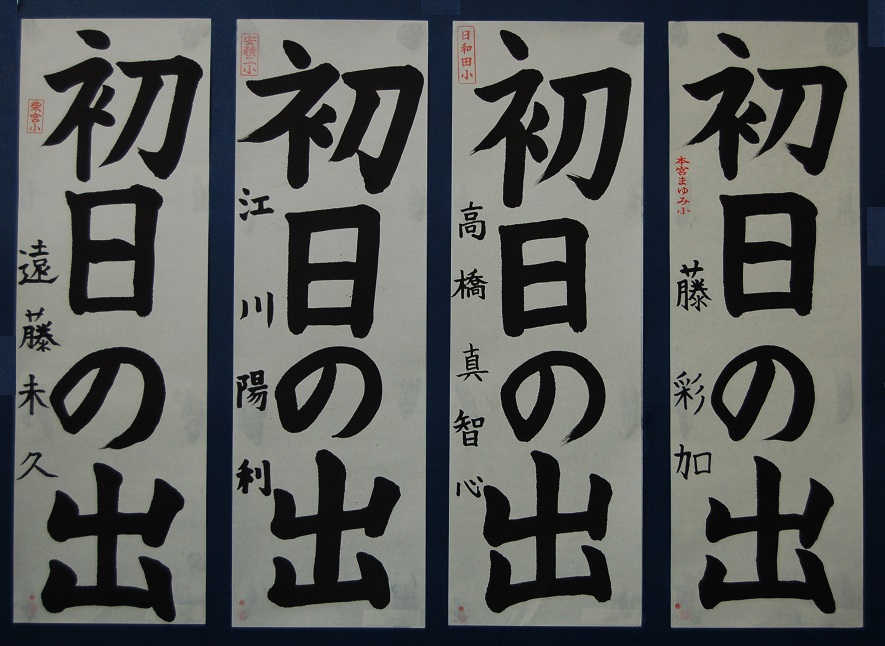 初日の出
本宮まゆみ小
藤彩加
初日の出
日和田小
高橋真智心
初日の出
安積二小
江川陽利
初日の出
柴宮小
遠藤未久